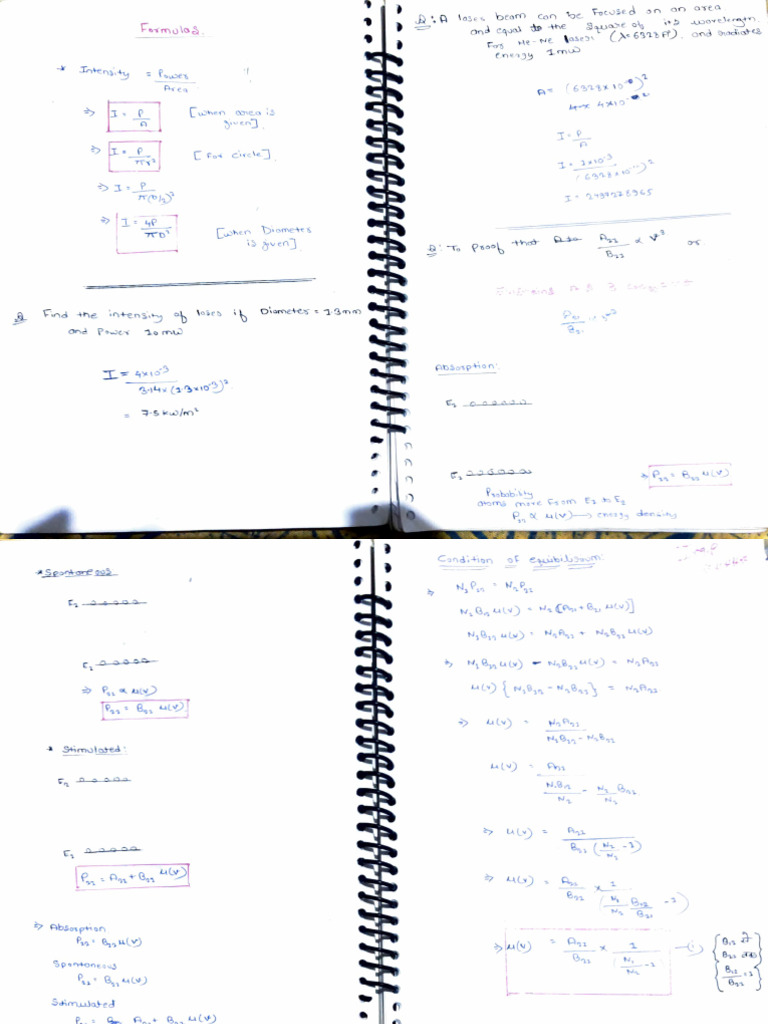 Formulas
* Intensity = Power / Area
⇒ I = P/A [When area is given]
⇒ I = P/πr² [For circle]
⇒ I = P/π(D/2)²
⇒ I = 4P/πD² [when Diameter is given]
Q Find the intensity of lases if Diameter = 1.3mm
and Power 10mw
I = 4×10⁻³ / 3.14×(1.3×10⁻³)²
= 7.5 kw/m²
Q: A lases beam can be focused on an area
and equal to the square of its wavelength
For He-Ne lases (λ=6328A°), and radiates
energy 1mw
I = P/A
Q: To Proof that A₂₁/B₂₁ ∝ ν³ or
Absorption:
E₂
E₁
⇒ P₁₂ = B₁₂ u(v)
Probability
atoms move from E₁ to E₂
P₁₂ ∝ u(v) → energy density
* Spontaneous
E₂
E₁
⇒ P₂₁ ∝ u(v)
P₂₁ = B₂₁ u(v)
* Stimulated:
E₂
E₁
P₂₁ = A₂₁ + B₂₁ u(v)
⇒ Absorption
P₁₂ = B₁₂ u(v)
Spontaneous
P₂₁ = B₂₁ u(v)
Stimulated
P₂₁ = A₂₁ + B₂₁ u(v)
Condition of equibilisum:
⇒ N₁P₁₂ = N₂P₂₁
N₁B₁₂ u(v) = N₂[A₂₁ + B₂₁ u(v)]
N₁B₁₂ u(v) = N₂A₂₁ + N₂B₂₁ u(v)
⇒ N₁B₁₂ u(v) - N₂B₂₁ u(v) = N₂A₂₁
u(v) {N₁B₁₂ - N₂B₂₁} = N₂A₂₁
⇒ u(v) = N₂A₂₁ / N₁B₁₂ - N₂B₂₁
u(v) = A₂₁ / N₁B₁₂/N₂ - N₂/N₂ B₂₁
⇒ u(v) = A₂₁ / B₂₁ (N₁/N₂ - 1)
⇒ u(v) = A₂₁/B₂₁ × 1/(N₁/N₂ B₁₂/B₂₁ - 1)
⇒ u(v) = A₂₁/B₂₁ × 1/(N₁/N₂ - 1) — (i)